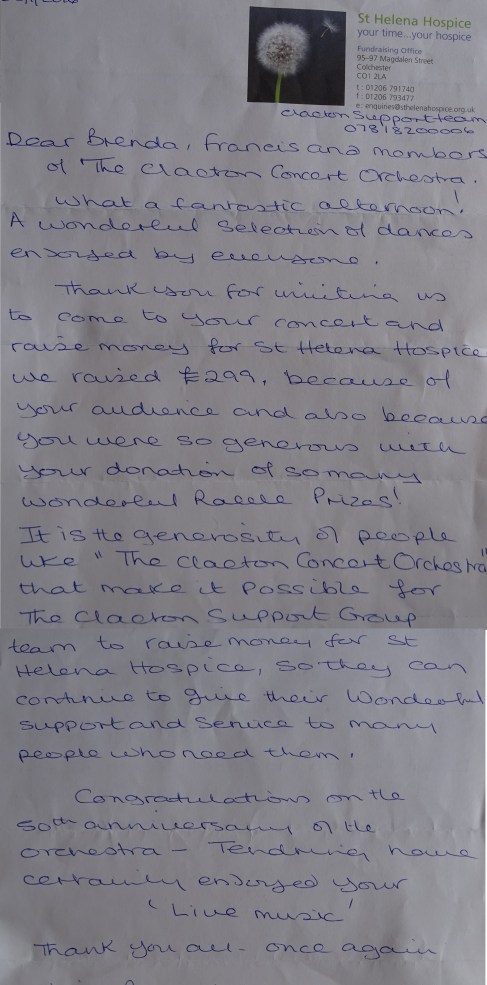 St Helena Hospice
your time...your hospice
Fundraising Office
95-97 Magdalen Street
Colchester
CO1 2LA
t : 01206 791740
f : 01206 793477
e: enquiries@sthelenahospice.org.uk
Clacton Support team
07818200006
Dear Brenda, Francis and members
of The Clacton Concert Orchestra.
What a fantastic afternoon!
A wonderful selection of dances
enjoyed by everyone.
Thank you for inviting us
to come to your concert and
raise money for St Helena Hospice
we raised £299, because of
your audience and also because
you were so generous with
your donation of so many
wonderful Raffle Prizes!
It is the generosity of people
like "The Clacton Concert Orchestra"
that make it possible for
The Clacton Support Group
team to raise money for St
Helena Hospice, so they can
continue to give their wonderful
support and service to many
people who need them.
Congratulations on the
50th anniversary of the
orchestra - Tendring
certainly enjoyed your
'Live music'
Thank you all - once again